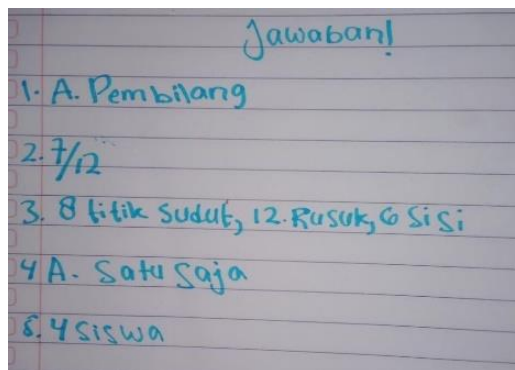 Jawaban!
1. A. Pembilang
2. 7/12
3. 8 titik sudut, 12. Rusuk, 6 sisi
4 A. Satu saja
5. 4 siswa